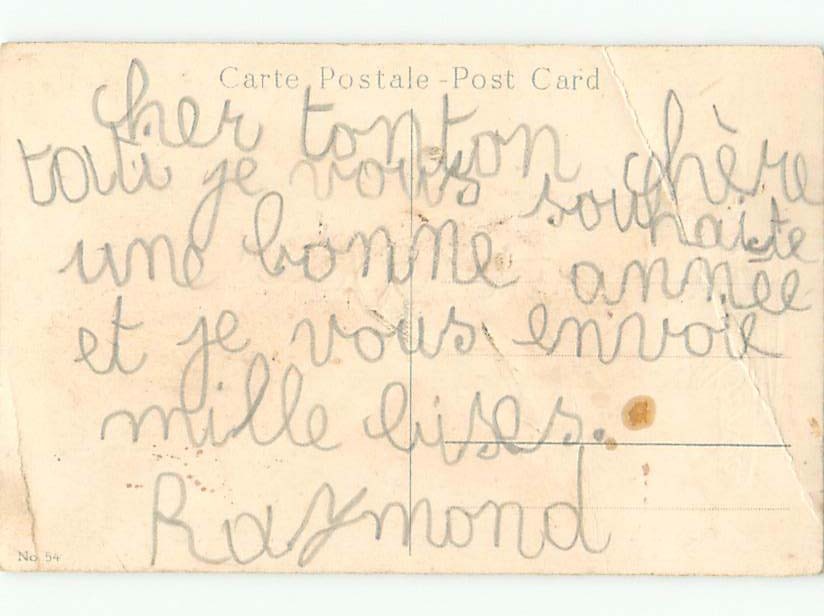 Carte Postale - Post Card
cher tonton chère
tati je vous souhaite
une bonne année
et je vous envoie
mille bises.
Raymond
No. 54